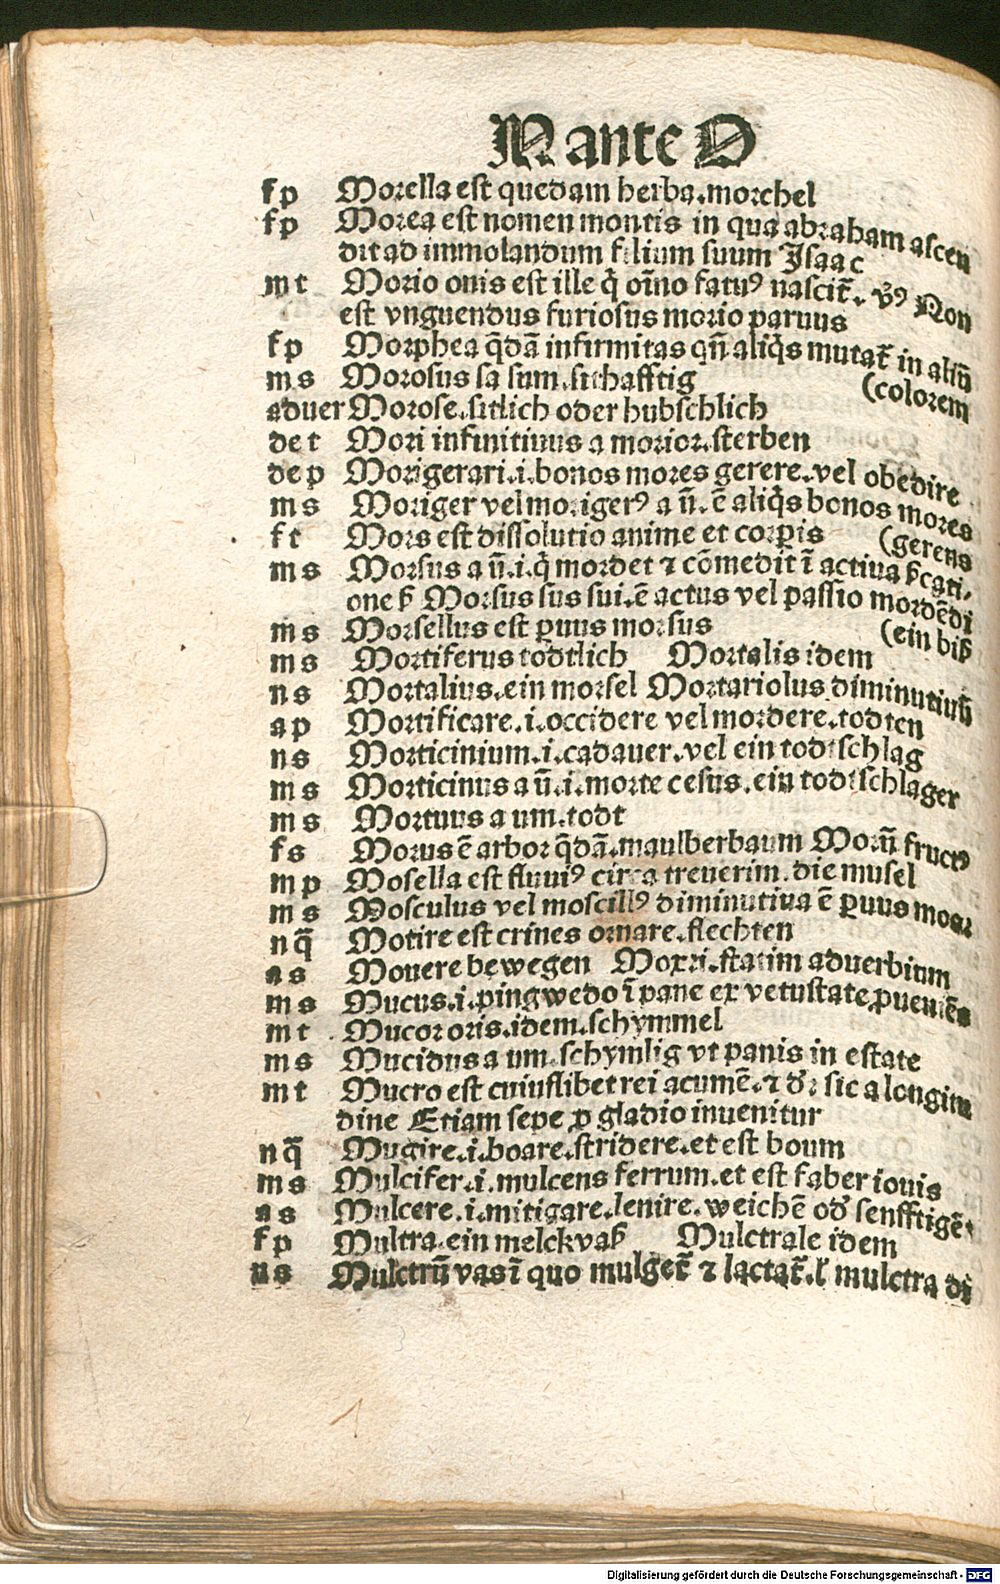 M ante O
fp Morella est quedam herba.morchel
fp Morea est nomen montis in qua abraham ascen
dit ad immolandum filium suum Isaac
mt Morio onis est ille q̇ oīno fatuꝰ nascit̄. v̓ꝰ Non
est vnguendus furiosus morio paruus
fp Morphea q̄dā infirmitas qn̄ aliq̇s mutat̄ in aliū
ms Morosus sa sum.sithafftig (colorem
aduer Morose.sitlich oder hubschlich
det Mori infinitiuus a morior.sterben
dep Morigerari.i.bonos mores gerere.vel obedire
ms Moriger vel morigerꝰ a ū.ē aliq̇s bonos mores
ft Mors est dissolutio anime et corꝑis (gerens
ms Morsus a ū.i.q̇ mordet ⁊ cōmedit ī actiua
Morsus sus sui.ē actus vel passio mordēdi
ms Morsellus est ꝑuus morsus (ein biß
ms Mortiferus todtlich Mortalis idem
ns Mortalius.ein morsel Mortariolus diminutiuū
ap Mortificare.i.occidere vel mordere.todten
ns Morticinium.i.cadauer.vel ein todtschlag
ms Morticinus a ū.i.morte cesus.ein todtschlager
ms Mortuus a um.todt
fs Morus ē arbor q̄dā.maulberbaum Morū fructꝰ
mp Mosella est fluuiꝰ circa treuerim.die musel
ms Mosculus vel moscillꝰ diminutiua ē ꝑuus
nq̄ Motire est crines ornare.flechten
as Mouere bewegen Moxxi.statim aduerbium
ms Mucus.i.pingwedo ī pane ex vetustate ꝓueniēs
mt Mucor oris.idem.schymmel
ms Mucidus a um.schymlig vt panis in estate
mt Mucro est cuiuslibet rei acumē.⁊ dr̄ sic a longitu
dine Etiam sepe ꝓ gladio inuenitur
nq̄ Mugire.i.boare.stridere.et est boum
ms Mulcifer.i.mulcens ferrum.et est faber iouis
as Mulcere.i.mitigare.lenire.weichē od̓ senfftigē
fp Multra.ein melckvaß Mulctrale idem
ns Mulctrū vas ī quo mulget̄ ⁊ lactat̄.l̓ mulctra di
Digitalisierung gefördert durch die Deutsche Forschungsgemeinschaft - DFG